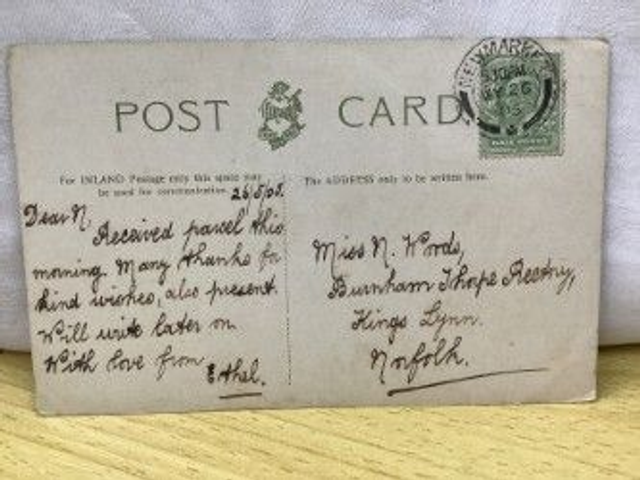 POST CARD
NEWMARKET
5.30PM
MY 26
05
For INLAND Postage only this space may
be used for communication.
The ADDRESS only to be written here.
26/5/05.
Dear N,
Received parcel this
morning. Many thanks for
kind wishes, also present.
Will write later on
With love from
Ethel.
Miss N. Woods,
Burnham Thorpe Rectory,
Kings Lynn.
Norfolk.